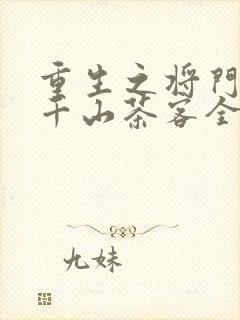 重生之将门
千山茶客全
九妹